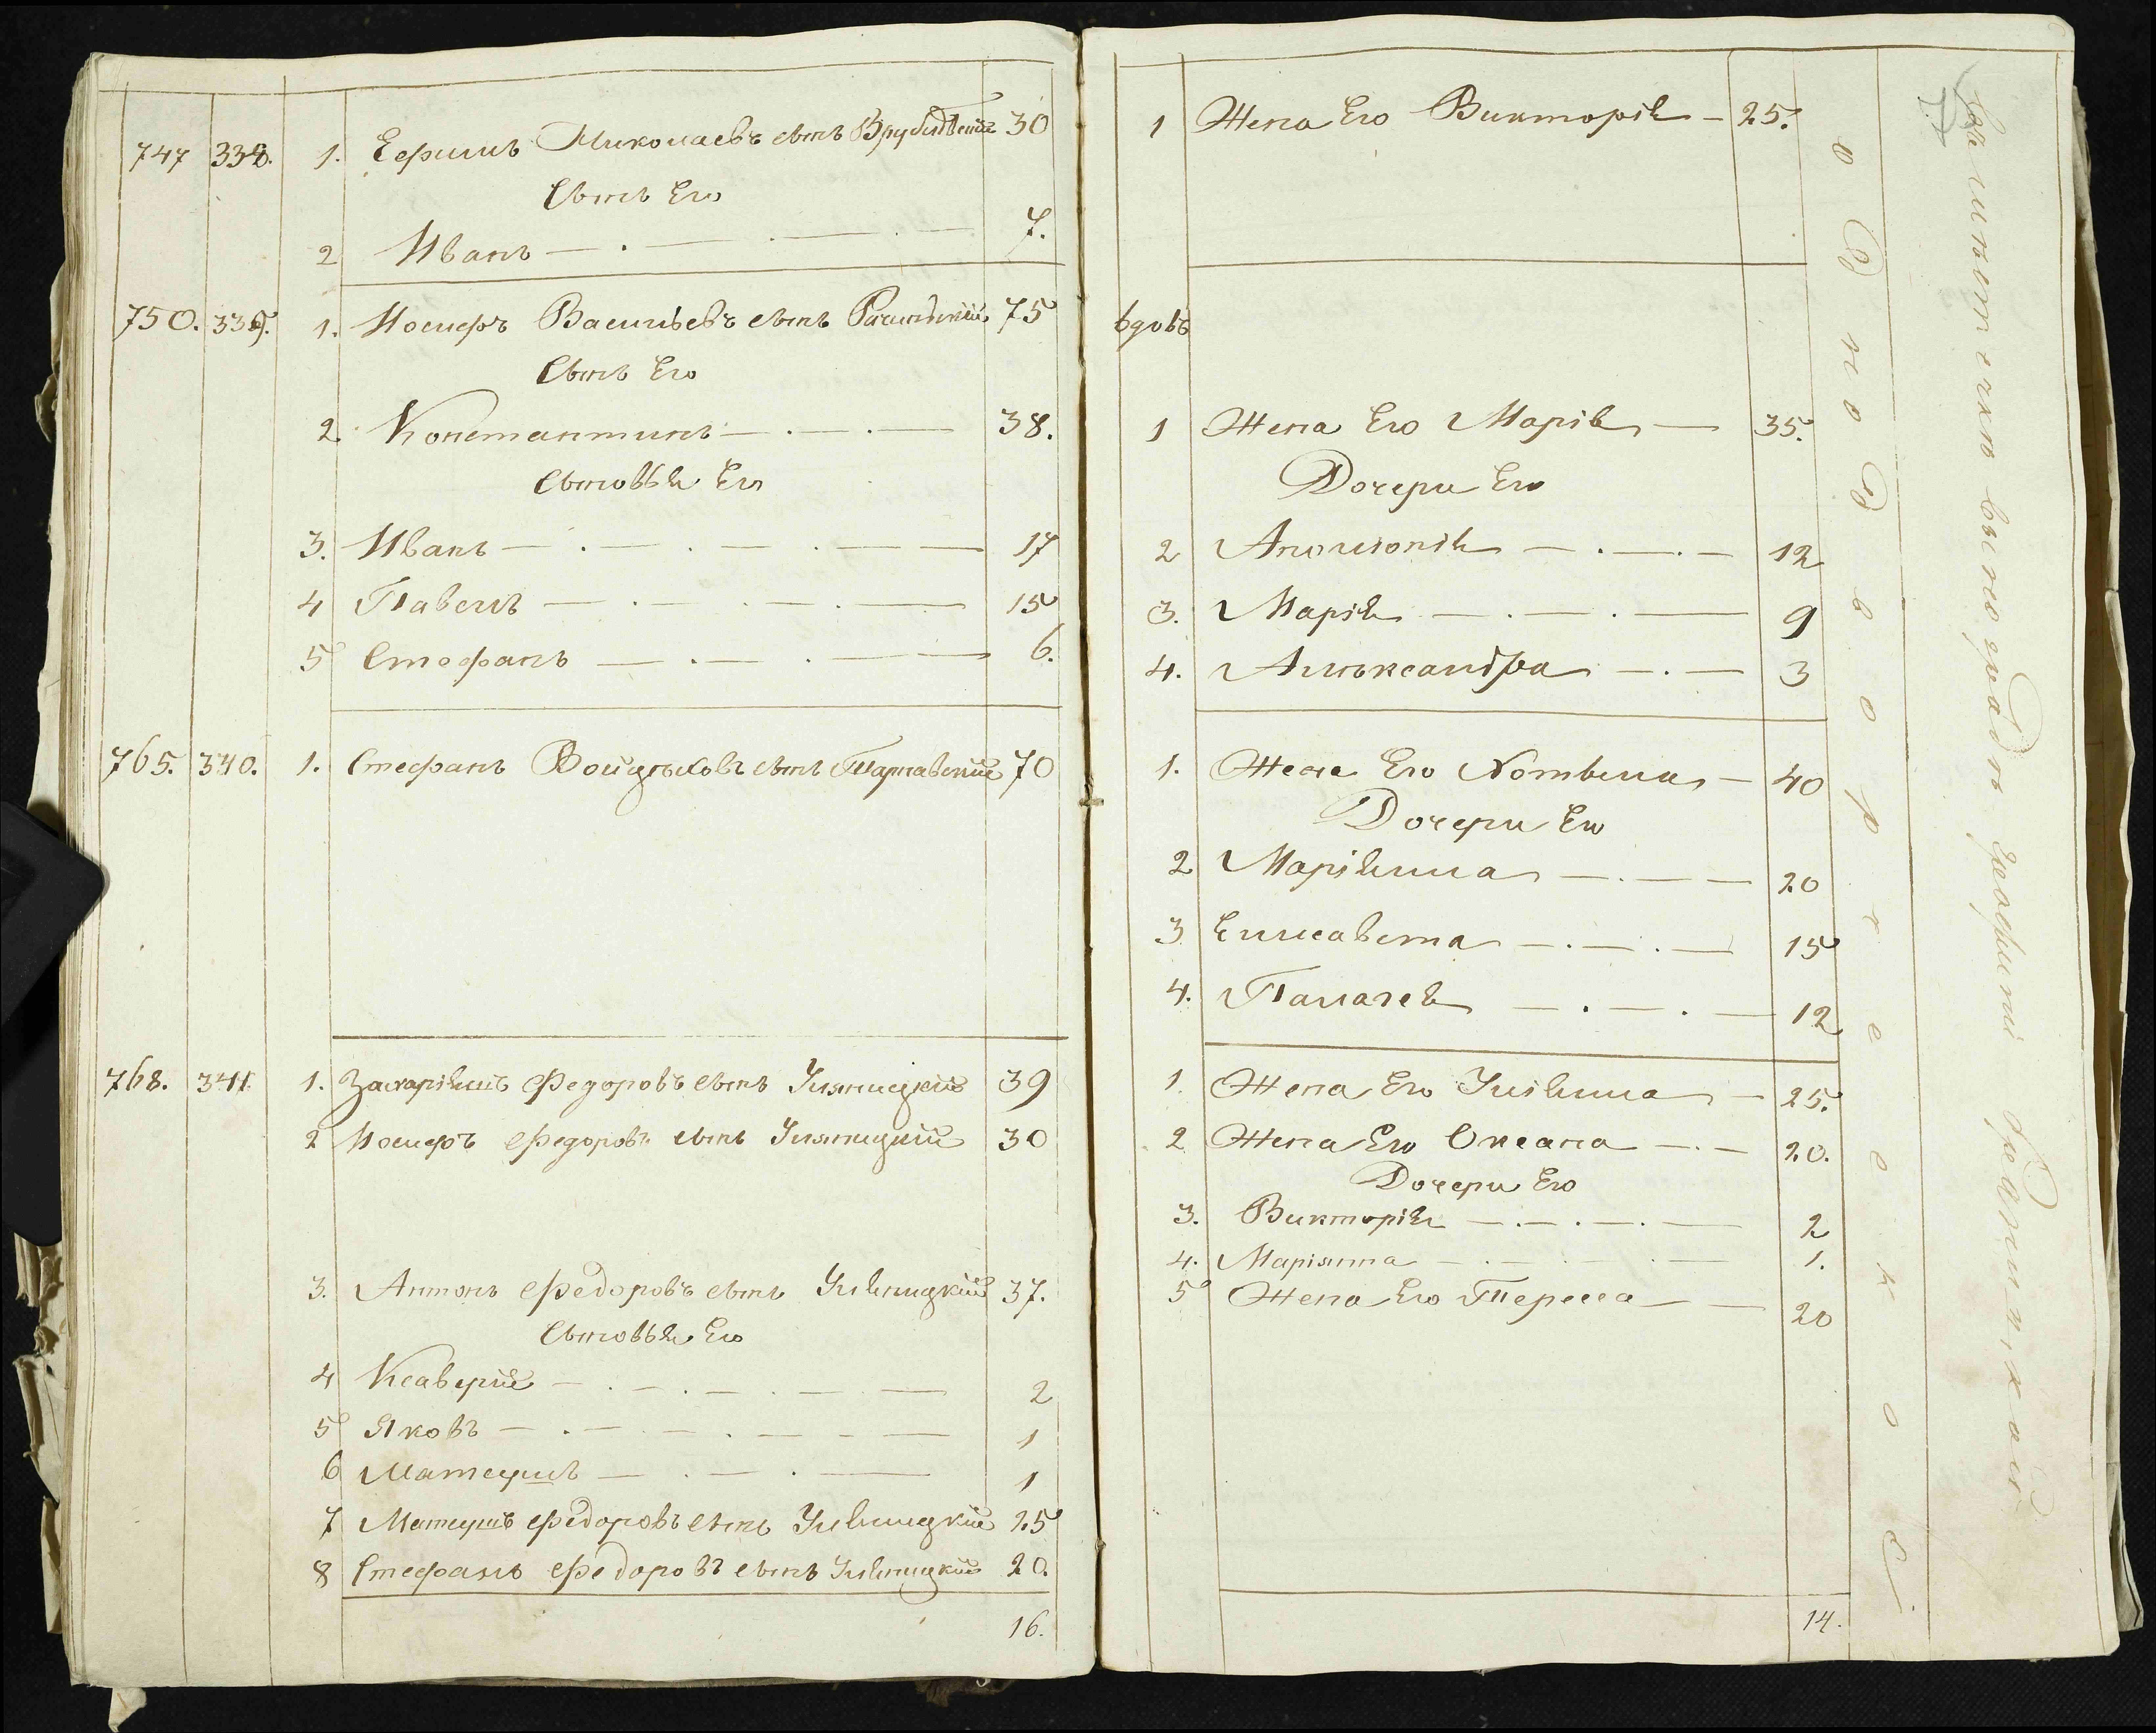 747 338. 1. Ефимъ Миколаевъ сынъ Врублевскій 30
Сынъ Его
2 Иванъ — 7.
750. 339. 1. Іосифъ Васильевъ сынъ 75
Сынъ Его
2. Константинъ — 38.
Сыновья Его
3. Иванъ — 17
4 Павелъ — 15
5 Стефанъ — 6.
765. 340. 1. Стефанъ сынъ Тарнавскій 70
768. 341. 1. Захаріяшъ Федоровъ сынъ Уляницкій 39
2 Іосифъ Федоровъ сынъ Уляницкій 30
3. Антонъ Федоровъ сынъ Уляницкій 37.
Сыновья Его
4 Ксаверій — 2
5 Яковъ — 1
6 Матеушъ — 1
7 Матеушъ Федоровъ сынъ Уляницкій 25
8 Стефанъ Федоровъ сынъ Уляницкій 20.
16.
1 Жена Его Викторія — 25.
вдовъ
1 Жена Его Марія — 35.
Дочери Его
2 Аполонія — 12
3. Марія — 9
4. Алѣксандра — 3
1. Жена Его — 40
Дочери Его
2 Маріянна — 20
3 Елисавета — 15
4. Палагея — 12
1. Жена Его Уліянна — 25.
2 Жена Его Оксана — 20.
Дочери Его
3. Викторія — 2
4. Маріянна — 1.
5 Жена Его Тересса — 20
14.